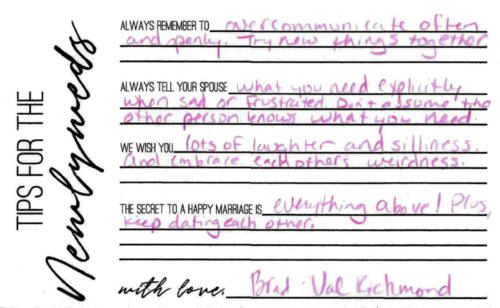 TIPS FOR THE
Newlyweds
ALWAYS REMEMBER TO overcommunicate often
and openly. Try new things together
ALWAYS TELL YOUR SPOUSE what you need explicitly
when sad or frustrated. Don't assume the
other person knows what you need.
WE WISH YOU lots of laughter and silliness.
and embrace each others weirdness.
THE SECRET TO A HAPPY MARRIAGE IS everything above! Plus,
keep dating each other.
with love, Brad · Val Richmond